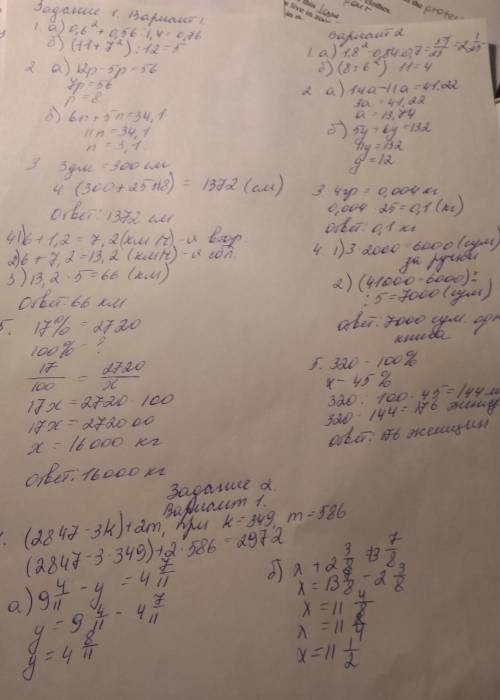 Задание 1. Вариант 1.
1. а) 0,6² + 0,56 : 1,4 = 0,76
б) (11+7²) : 12 = 5
2. а) 12p-5p=56
7p=56
p=8
б) 6n+5n=34,1
11n=34,1
n=3,1
3. 3дм = 300 см
4 (300+25 = 1372 (см)
Ответ: 1372 см
4) 1) 6+1,2=7,2 (км
2) 6+7,2=13,2 (км
3) 13,2 · 5=66 (км)
Ответ: 66 км
5. 17% = 2720
100% - ?
17/100 = 2720/x
17x=2720·100
17x=272000
x=16000 кг
Ответ: 16000 кг
Вариант 2
1. а) 1,8² - 0,84:0,7 = 51/25 = 2 1/25
б) (8+6²) 11=4
2. а) 14a-11a=41,22
3a=41,22
a=13,74
б) 5y+6y=132
11y=132
y=12
3. 4гр = 0,004 кг
0,004 · 25=0,1 (кг)
Ответ: 0,1 кг
4. 1) 3 2000=6000 (сум)
за ручки
2) (41000-6000):
:5=7000 (сум)
Ответ: 7000 сум. одна
книга
5. 320 - 100%
x - 45%
320 : 100 · 45=144
320 - 144=176 женщ
Ответ: 176 женщин
Задание 2
Вариант 1.
1. (2847-3k)+2m, при k=349, m=586
(2847-3·349)+2·586=2972
а) 9 4/11 - y = 4 7/11
y = 9 4/11 - 4 7/11
y = 4 8/11
б) x + 2 3/8 = 13 7/8
x = 13 7/8 - 2 3/8
x = 11 4/8
x = 11
x = 11 1/2